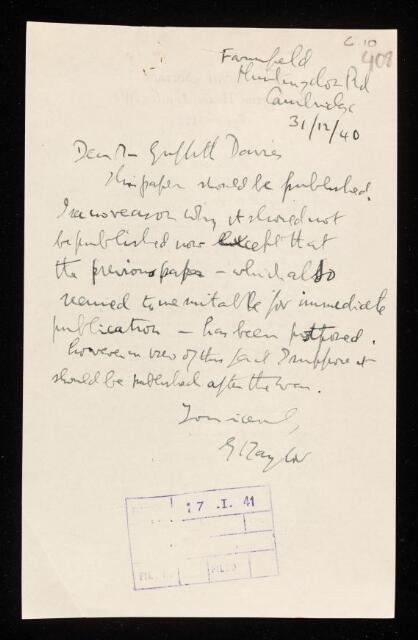 6.10
408
Farmfield
Huntingdon Rd
Cambridge
31/12/40
Dear Mr Griffith Davies
This paper should be published.
I see no reason why it should not
be published now except that
the previous paper – which also
seemed to me suitable for immediate
publication – has been postponed.
However in view of this fact I suppose it
should be published after the war.
Yours sincerely,
G I Taylor
17 .I. 41
FILED